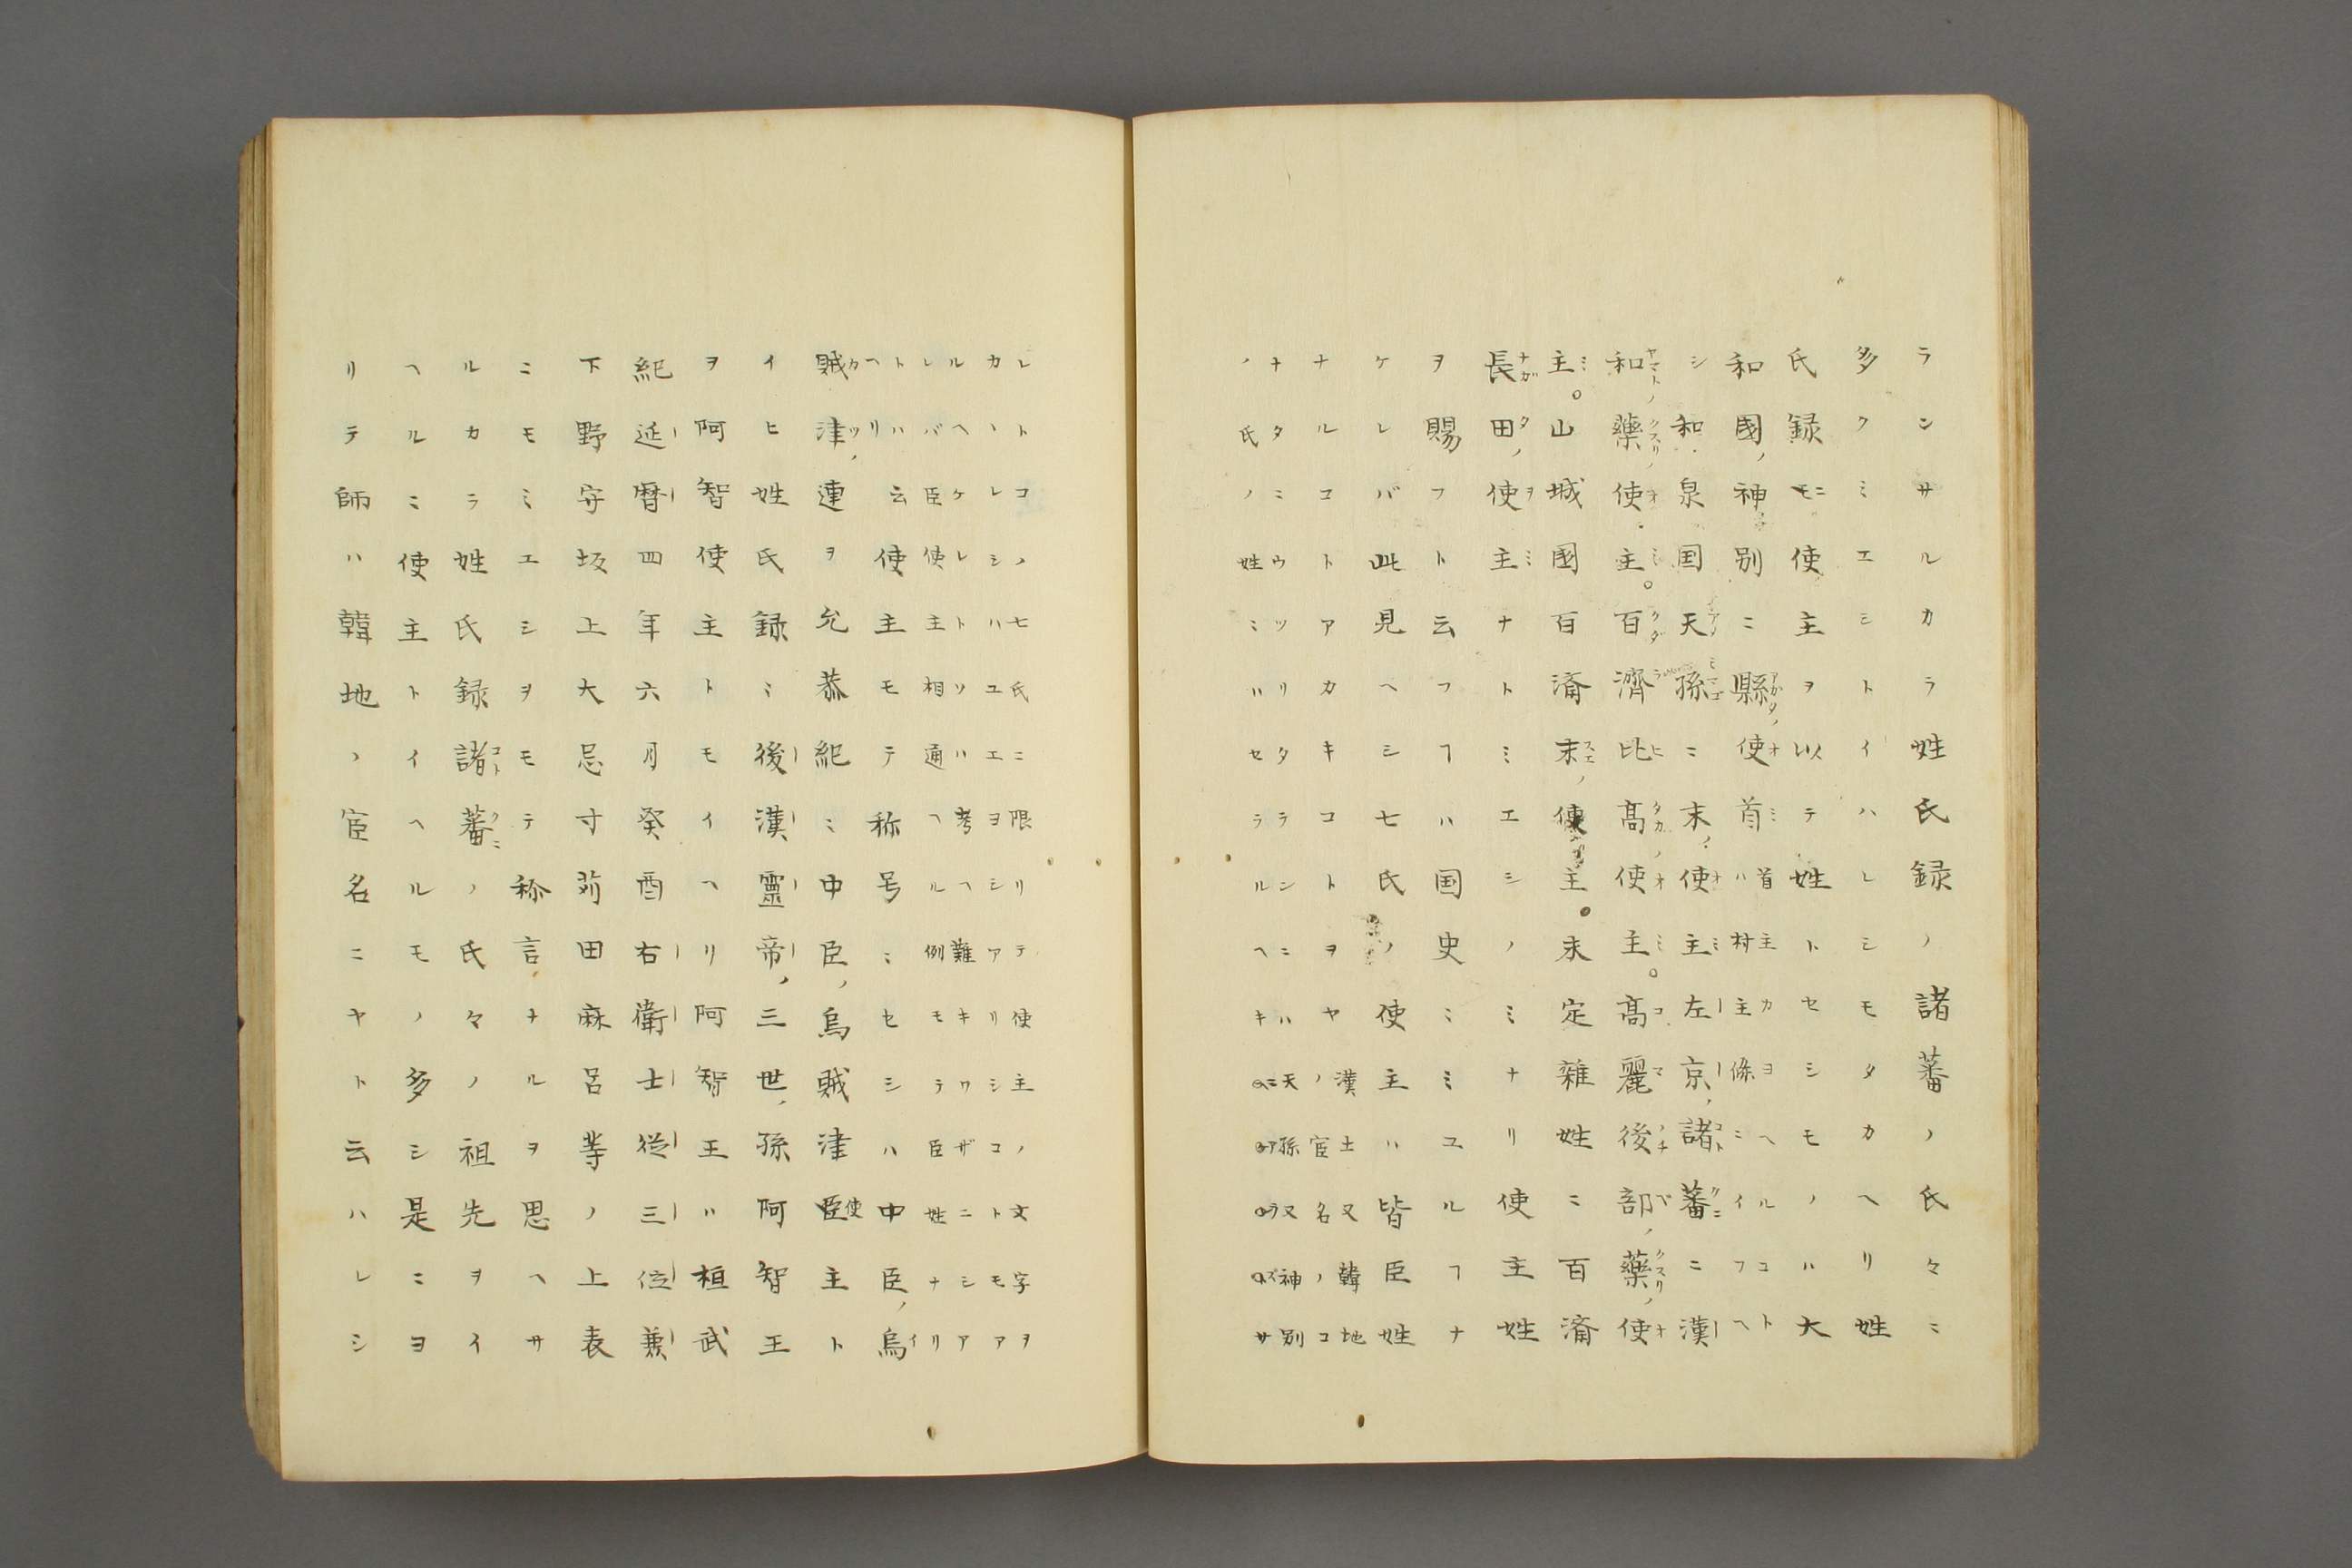 ランサルカラ姓氏録ノ諸蕃ノ氏々ニ
多クミエシトイハレシモタカヘリ姓
氏録ニモ使主ヲ以テ姓トセシモノハ大
和國ノ神別ニ縣使首ハ
首主カヨヘルコト
村主條ニイフヘ
シ和泉国天孫ニ末使主左京諸蕃ニ漢
和藥使主。百濟比高使主。高麗後部藥使
主。山城國百済末使主。末定雜姓ニ百済
長田使主ナトミエシノミナリ使主姓
ヲ賜フト云フヿハ国史ニミユルヿナ
ケレバ此見ヘシ七氏ノ使主ハ皆臣姓
ナルコトアカキコトヲヤ
漢土又韓地
ノ官名ノコ
ナタニウツリタランニハ天孫又神別
ノ氏ノ姓ミハセラルヘキニアラズサ
レトコノ七氏ニ限リテ使主ノ文字ヲ
カヽレシハユエヨシアリシコトモア
ルヘケレトソハ考ヘ難キワザニシア
レバ臣使主相通ヘル例モテラ臣姓ナリ
トハ云
使主モテ称号ミセシハ中臣ノ烏
賊津連ヲ允恭紀ミ中臣ノ烏賊津使主ト
イヒ姓氏録ミ後漢靈帝ノ三世孫阿智王
ヲ阿智使主トモイヘリ阿智王ハ桓武
紀延暦四年六月癸酉右衛士従三位兼
下野守坂上大忌寸苅田麻呂等ノ上表
ニモミエシヲモテ称言ナルヲ思ヘサ
ルカラ姓氏録諸蕃ノ氏々ノ祖先ヲイ
ヘルニ使主トイヘルモノ多シ是ニヨ
リテ師ハ韓地ノ官名ニヤト云ハレシ